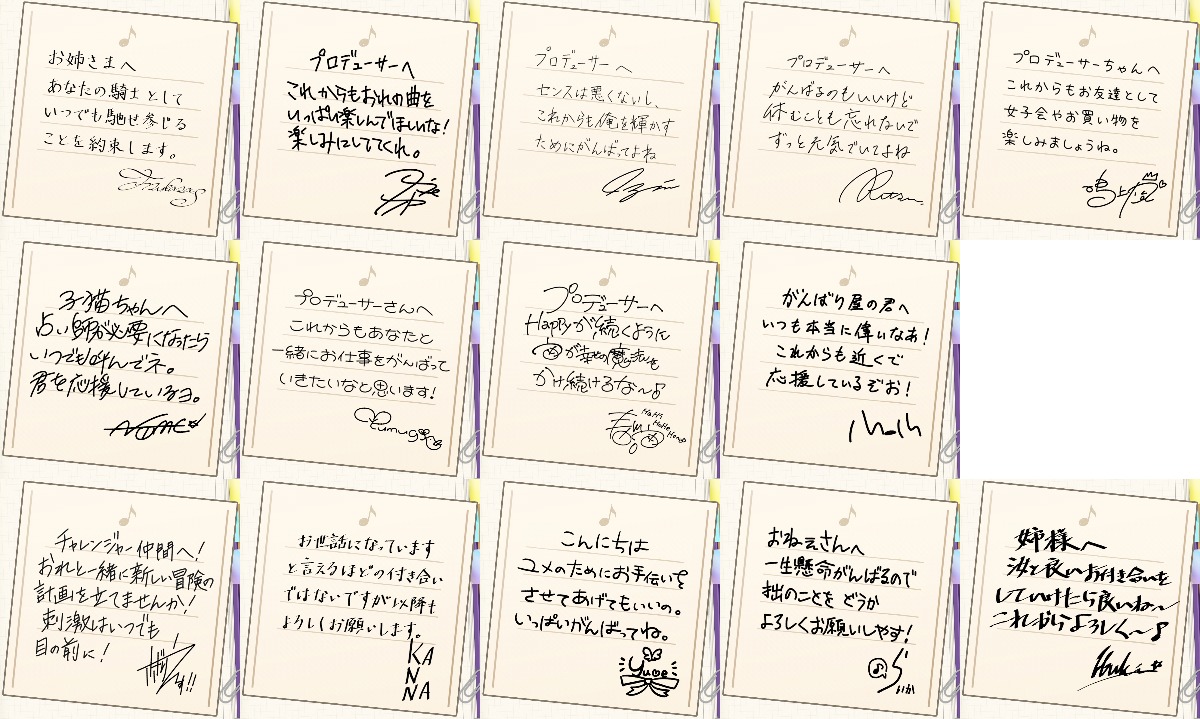 お姉さまへ
あなたの騎士として
いつでも馳せ参じる
ことを約束します。
プロデューサーへ
これからもおれの曲を
いっぱい楽しんでほしいな!
楽しみにしててくれ。
プロデューサーへ
センスは悪くないし、
これからも俺を輝かす
ためにがんばってよね
プロデューサーへ
がんばるのもいいけど
休むことも忘れないで
ずっと元気でいてよね
Ritsu
プロデューサーちゃんへ
これからもお友達として
女子会やお買い物を
楽しみましょうね。
鳴上嵐
子猫ちゃんへ
占い師が必要になったら
いつでも呼んでネ。
君を応援しているヨ。
プロデューサーさんへ
これからもあなたと
一緒にお仕事をがんばって
いきたいなと思います!
Tsumugi
プロデューサーへ
Happyが続くように
が幸せの魔法を
かけ続けるな~♪
HaHi
HuHeHo
がんばり屋の君へ
いつも本当に偉いなあ!
これからも近くで
応援しているぞお!
チャレンジャー仲間へ!
おれと一緒に新しい冒険の
計画を立てませんか!
刺激はいつでも
目の前に!
お世話になっています
と言えるほどの付き合い
ではないですが以降も
よろしくお願いします。
KA
N
NA
こんにちは
ユメのためにお手伝いを
させてあげてもいいの。
いっぱいがんばってね。
Yume
おねえさんへ
一生懸命がんばるので
拙のことをどうか
よろしくお願いしやす!
らいか
姉様へ
汝と良いお付き合いを
していけたら良いね~
これからよろしく~♪